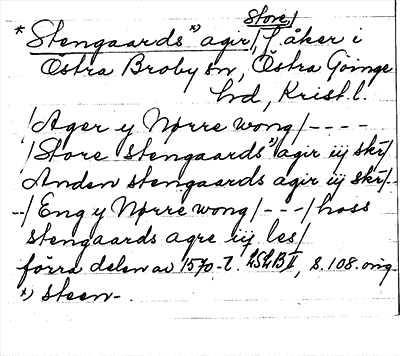 Store/
* Stengaards *) agir/, f. åker i
Östra Broby sn, Östra Göinge
hd, Krist. l.
/Ager y Nørre wong/ - - - -
/Store stengaards *) agir iij skr/
Anden stengaards agir iij skr/-
--/Eng y Nørre wong/ - - -/hoss
stengaards agre iij les/
förra delen av 1570-t. LSLB II, s. 108. orig.
*) steen-